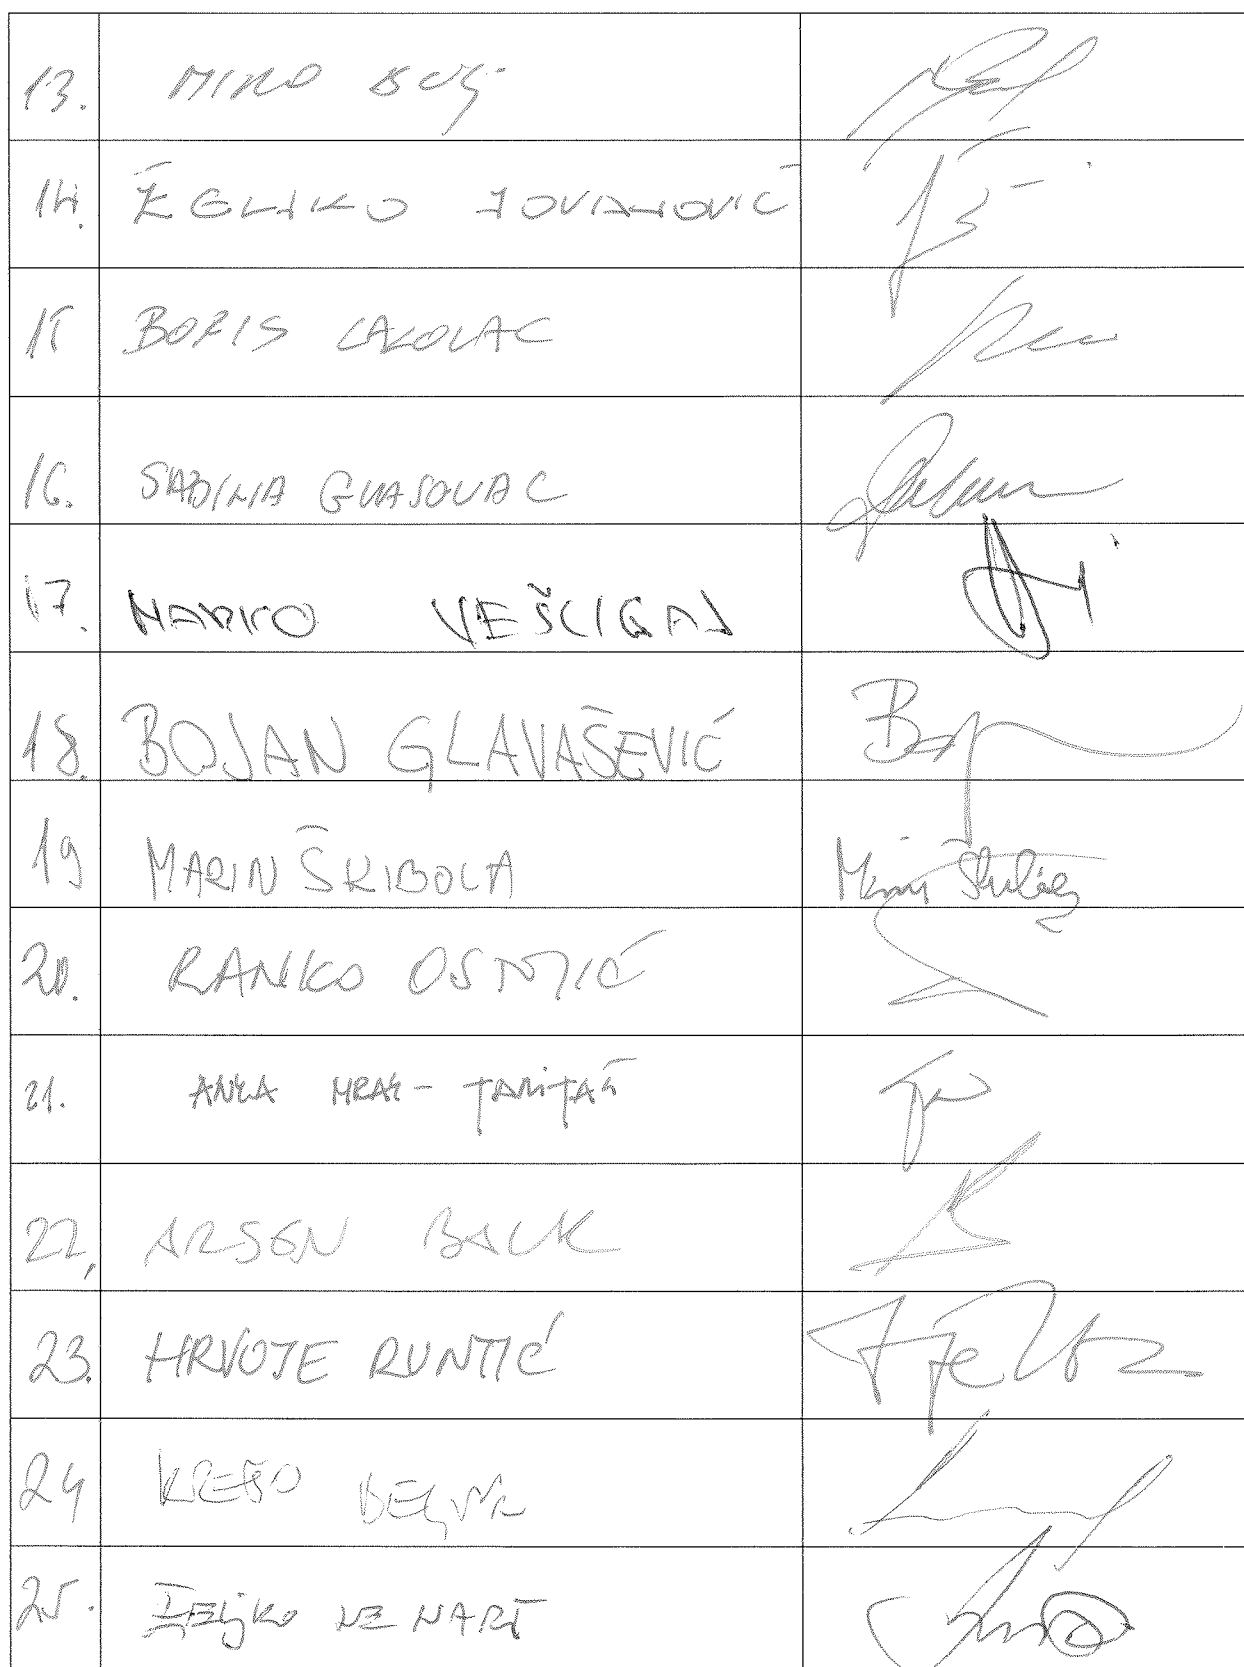 13. MIRO BULJ
14. ŽELJKO JOVANOVIĆ
15 BORIS LALOVAC
16. SABINA GLASOVAC
17. MARKO VEŠLIGAJ
18. BOJAN GLAVAŠEVIĆ
19 MARIN ŠKIBOLA
20. RANKO OSTOJIĆ
21. ANKA MRAK-TARITAŠ
22. ARSEN BAUK
23. HRVOJE RUNTIĆ
24 KREŠO BELJAK
25. ŽELJKO LENART